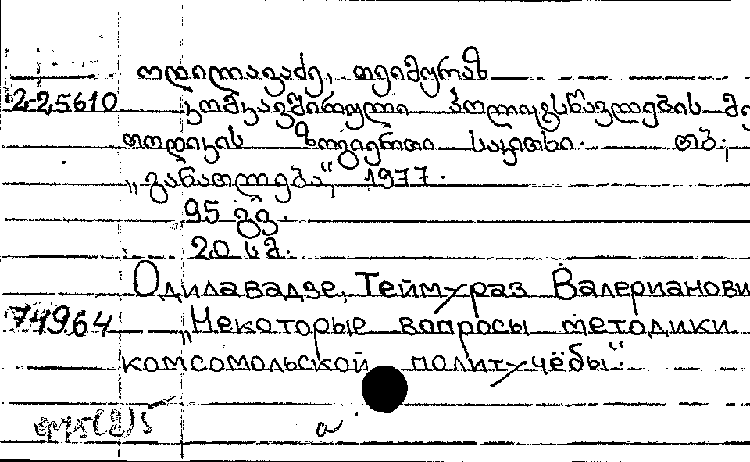 ოდილავაძე, თეიმურაზ
2-25610 კომკავშირული პოლიტსწავლების მე
თოდიკის ზოგიერთი საკითხი. თბ.,
„განათლება“, 1977.
95 გვ.
20 სმ.
Одилавадзе, Теймураз Валерианови
74964 „Некоторые вопросы методики
комсомольской политучёбы“.